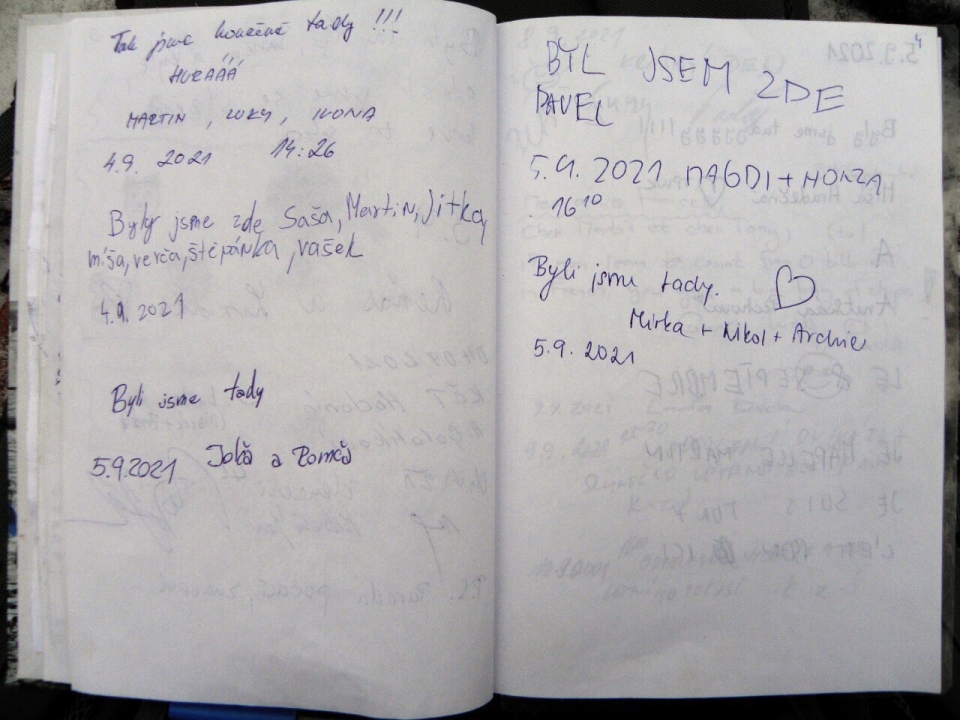 Tak jsme konečně tady !!!
HURÁÁÁ
MARTIN, LUKY, IVONA
4.9. 2021 14:26
Byly jsme zde Saša, Martin, Jitka,
míša, verča, štěpánka, vašek
4.9. 2021
Byli jsme tady
5.9.2021 a Tomáš
BYL JSEM ZDE
PAVEL
5.9. 2021 MAGDI + HONZA
16 10
Byli jsme tady.
Mirka + Nikol + Archie
5.9. 2021